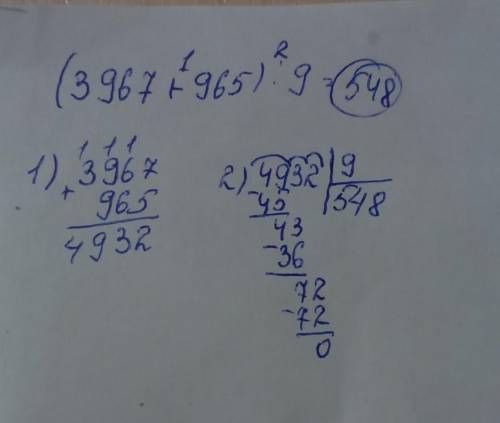 1 2
(3967+965):9=548
1) 111
3967
+ 965
4932
2) 4932 | 9
-45 | 548
43
-36
72
-72
0